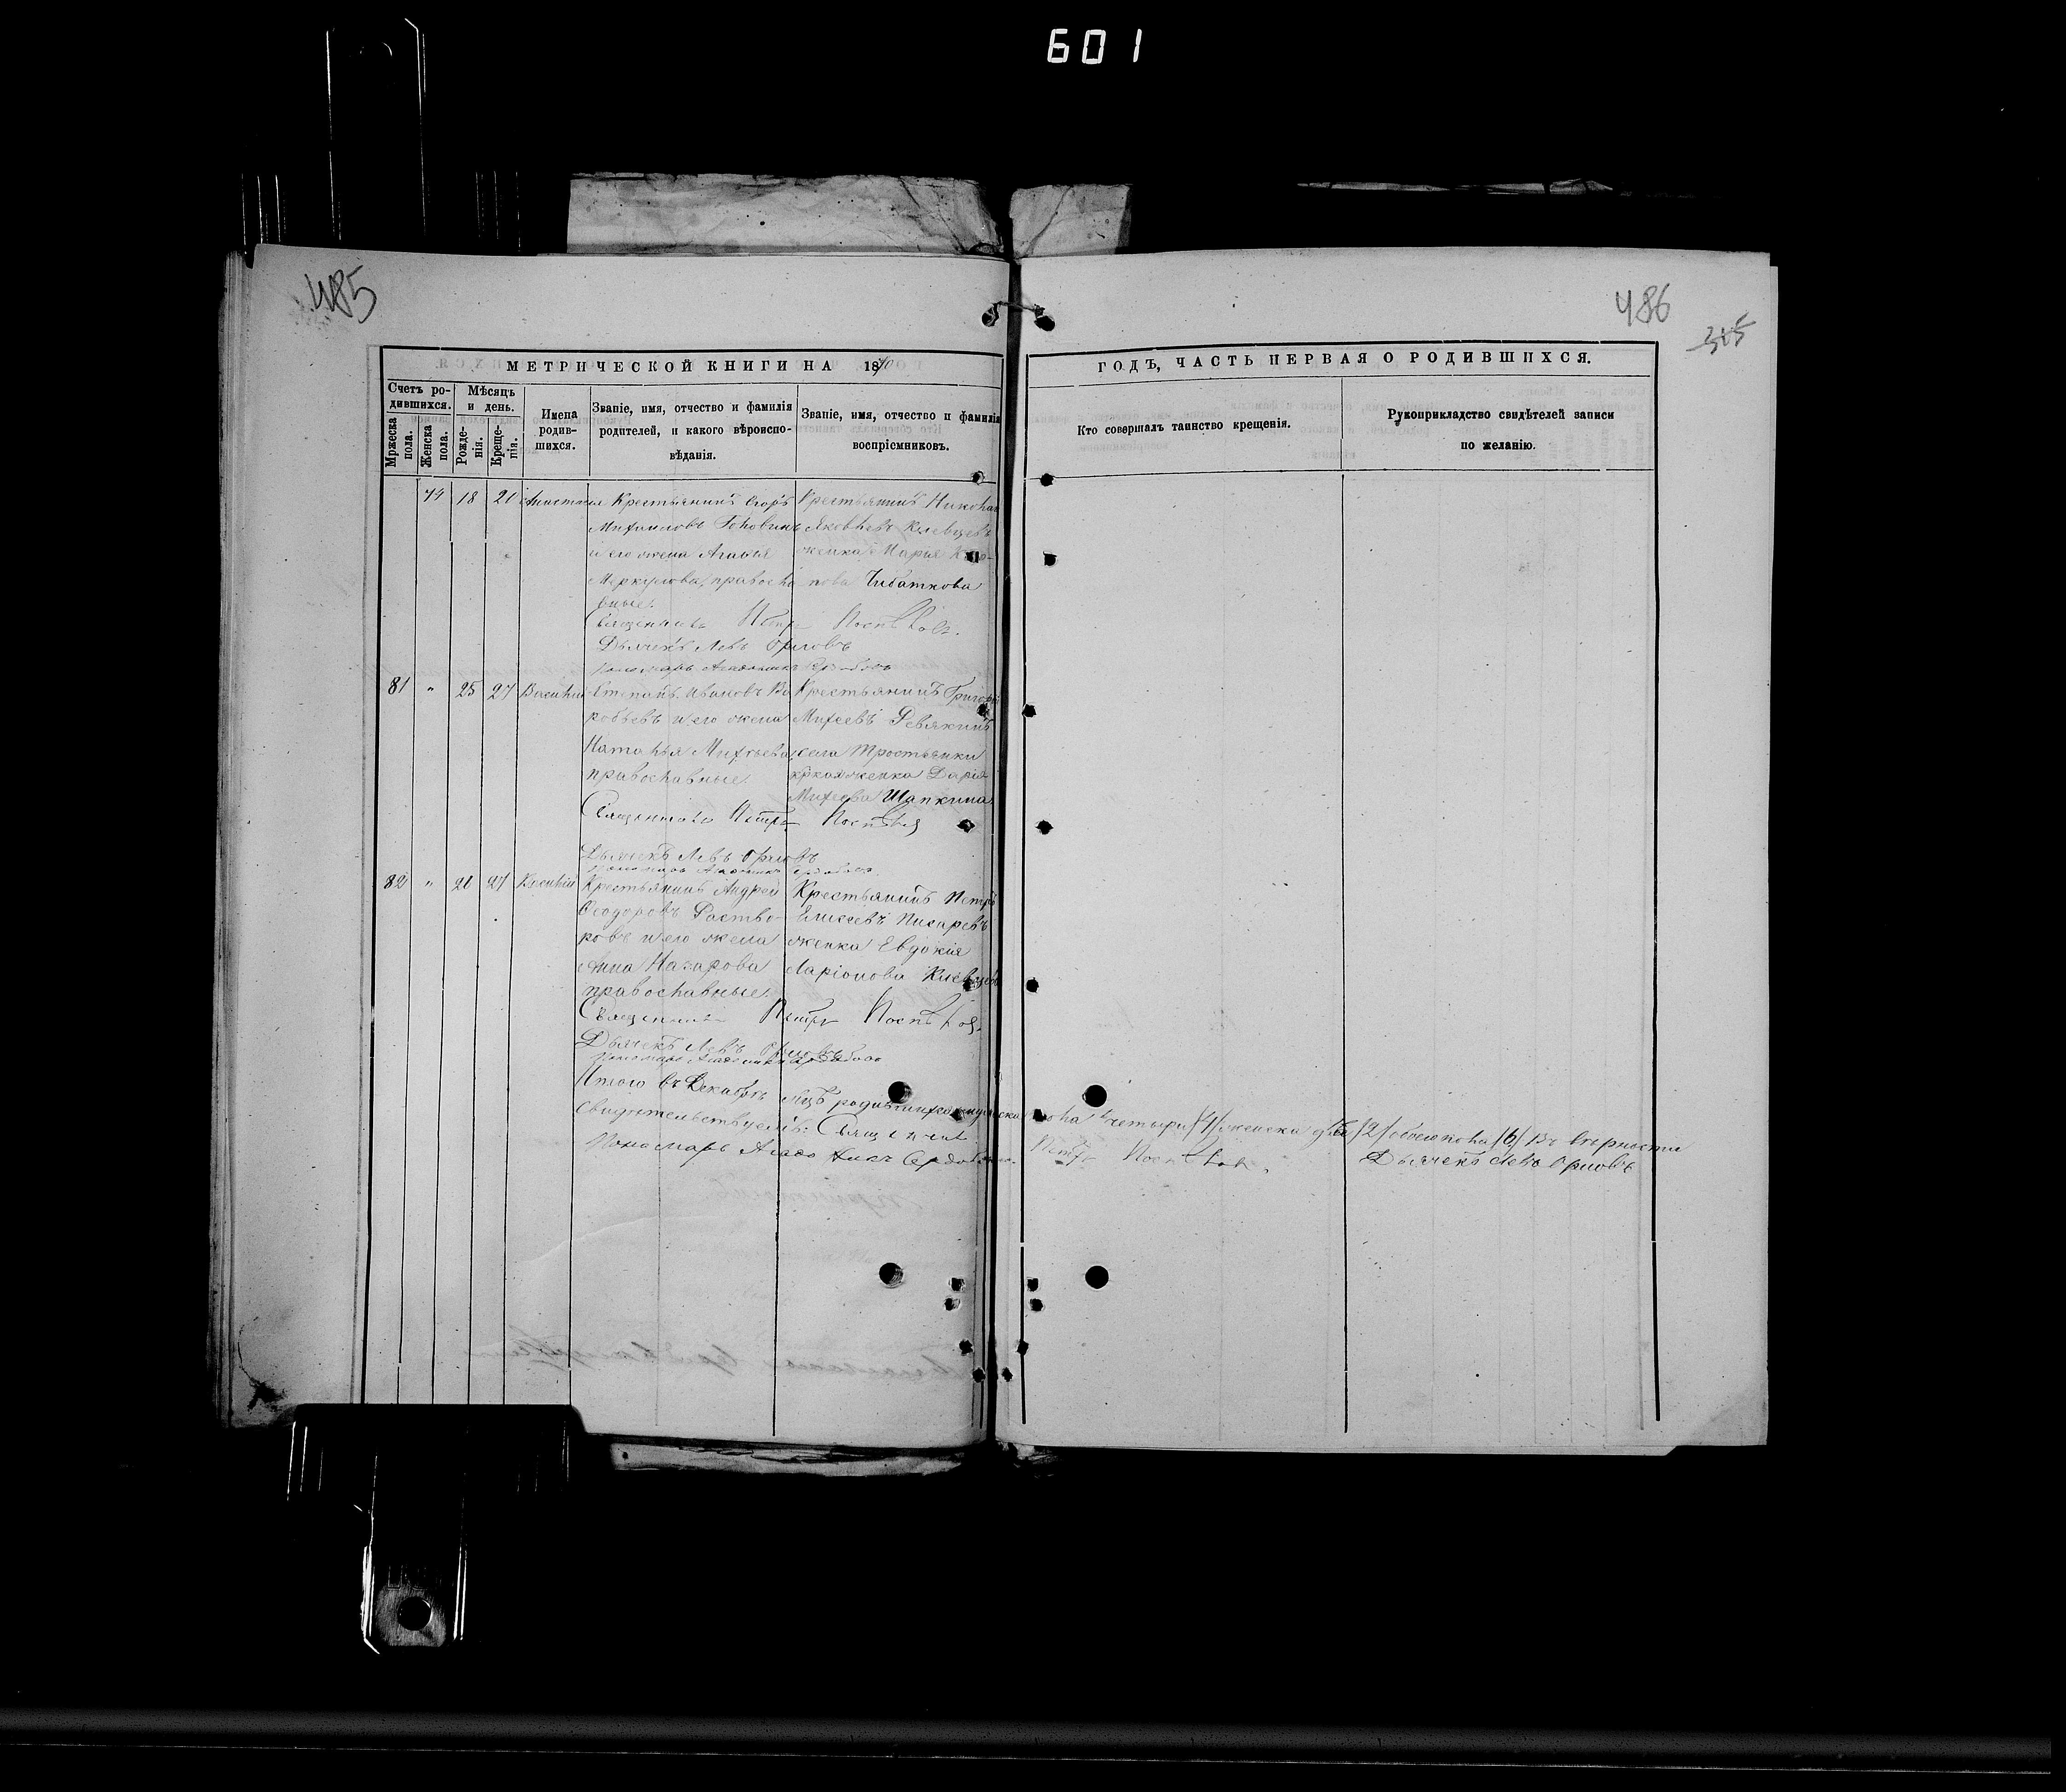 601
485
486
315
МЕТРИЧЕСКОЙ КНИГИ НА 1870
ГОДЪ, ЧАСТЬ ПЕРВАЯ О РОДИВШИХСЯ.
Счетъ родившихся.
Мужеска пола.
Женска пола.
Мѣсяцъ и день.
Рожденія.
Крещенія.
Имена родившихся.
Званіе, имя, отчество и фамилія
родителей, и какого вѣроиспо-
вѣданія.
Званіе, имя, отчество и фамилія
воспріемниковъ.
Кто совершалъ таинство крещенія.
Рукоприкладство свидѣтелей записи
по желанію.
74 18 20 Анастасія Крестьянинъ Егоръ
Михаиловъ Головинъ
и его жена Агафья
Меркулова, правосла
вные.
Крестьянинъ Николай
Яковлевъ Клевцевъ
женка Марія
Чибаткова
Священникъ Петръ Поспѣловъ.
Дьячекъ Левъ Орловъ
Пономарь
81 " 25 27 Василий Степанъ Ивановъ Во
робьевъ и его жена
Наталья Михеева
православные.
Крестьянинъ Григорій
Михеевъ Ревякинъ
села Тростянки
женка Дарія
Михеева Шапкина
Священникъ Петръ Поспѣловъ
Дьячекъ Левъ Орловъ
Пономарь
82 " 20 27 Василій Крестьянинъ Андрей
Ѳеодоровъ Раство-
ровъ и его жена
Анна Назарова
православные.
Крестьянинъ Петръ
Елисеевъ Писаревъ
женка Евдокія
Ларіонова
Священникъ Петръ Поспѣловъ.
Дьячекъ Левъ Орловъ
Пономарь
Итого въ Декабрѣ мцѣ родившихся мужеска пола четыри /4/ женска двѣ /2/ обоего пола /6/ Въ вѣрности
свидѣтельствуемъ: Священникъ Петръ Поспѣловъ. Дьячекъ Левъ Орловъ
Пономарь